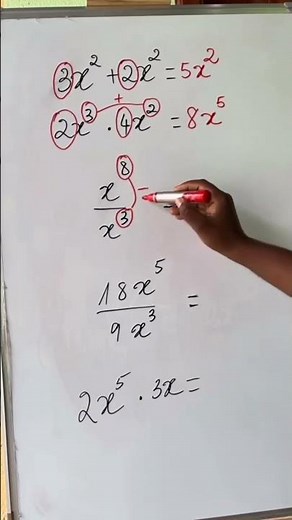 3x² + 2x² = 5x²
+
2x³ · 4x² = 8x⁵
x⁸/x³ =
18x⁵/9x³ =
2x⁵ · 3x =